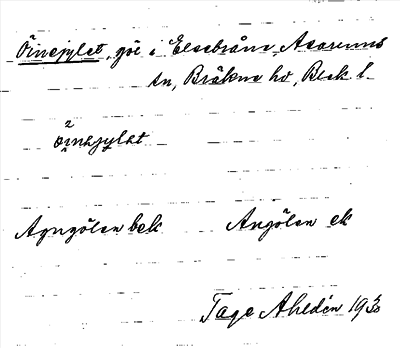 Öinejylet, göl i Elsebråne, Asarums
sn, Bräkne hd,Blek. l.
öinejylet
Agngölen bek Angölen ek
Tage Ahldén 193